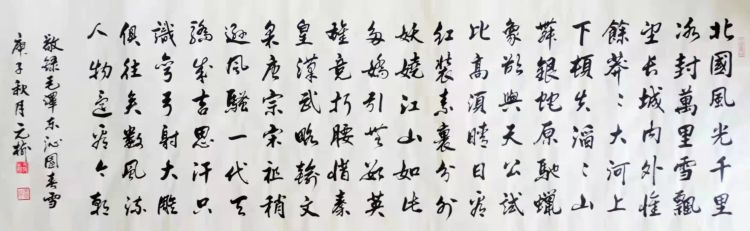 北國風光千里
冰封萬里雪飄
望长城内外惟
餘莽〻大河上
下頓失滔〻山
舞銀蛇原馳蠟
象欲與天公試
比高須晴日看
红装素裹分外
妖嬈江山如此
多嬌引無數英
雄竟折腰惜秦
皇漢武略輸文
采唐宗宋祖稍
遜風騷一代天
驕成吉思汗只
識彎弓射大雕
俱往矣數風流
人物還看今朝
敬録毛澤東沁園春雪
庚子秋月元